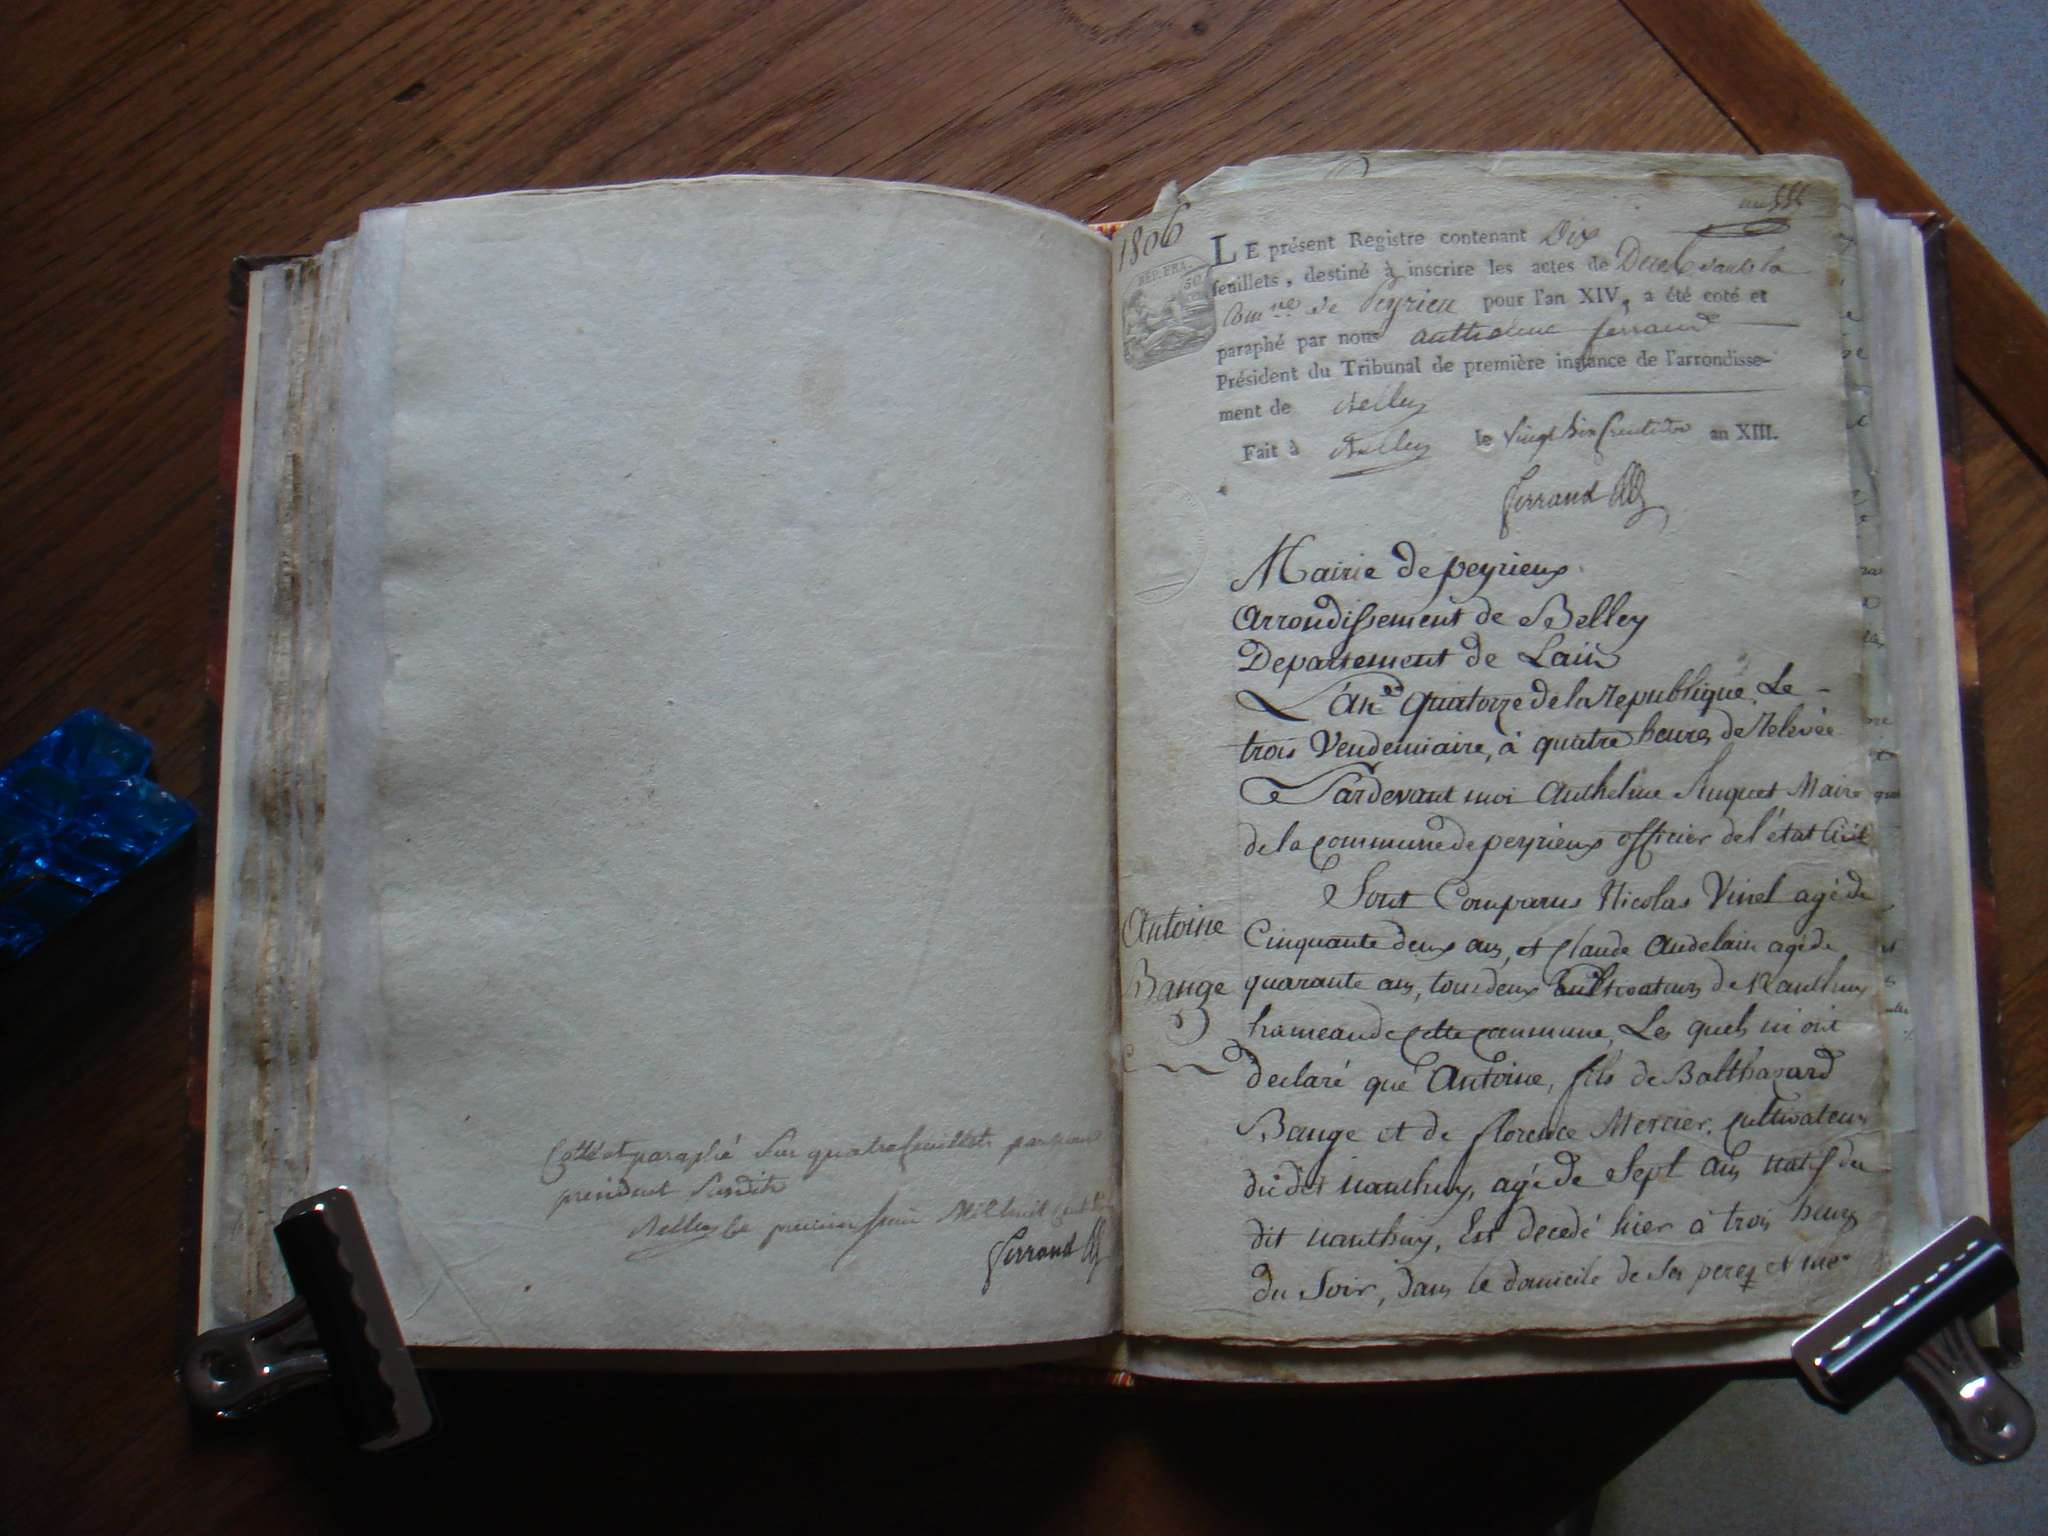 Cotté et paraphé Sur quatre feuillets par nous
president Susdit
Belley le premier Mil huit cent
Ferrand
1806
REP. FRA.
50
LE présent Registre contenant Dix
feuillets, destiné à inscrire les actes de Deces dans la
Comne de Peyrieu pour l'an XIV, a été coté et
paraphé par nous anthelme ferrand
Président du Tribunal de première instance de l'arrondisse-
ment de Belley
Fait à Belley le Vingt Six fructidor an XIII.
Ferrand
Mairie de peyrieux
Arrondissement de Belley
Departement de Lain
L'an quatorze de la Republique, Le
trois Vendemiaire, à quatre heures de Relevée
Pardevant moi Anthelme Huguet Maire
de la commune de peyrieux officier de l'état Civil
Sont Comparus Nicolas Vinel agé de
Antoine
Cinquante deux ans, et Claude Andelain agé de
Bange
quarante ans, tous deux Cultivateurs de Nanthuy
hameau de Cette commune, Les quels m'ont
declaré que Antoine, fils de Balthazard
Bange et de florence Mercier, Cultivateurs
du dit nanthuy, agé de Sept ans natif du
dit nanthuy, Est decedé hier à trois heures
du Soir, dans le domicile de Ses peres et mere